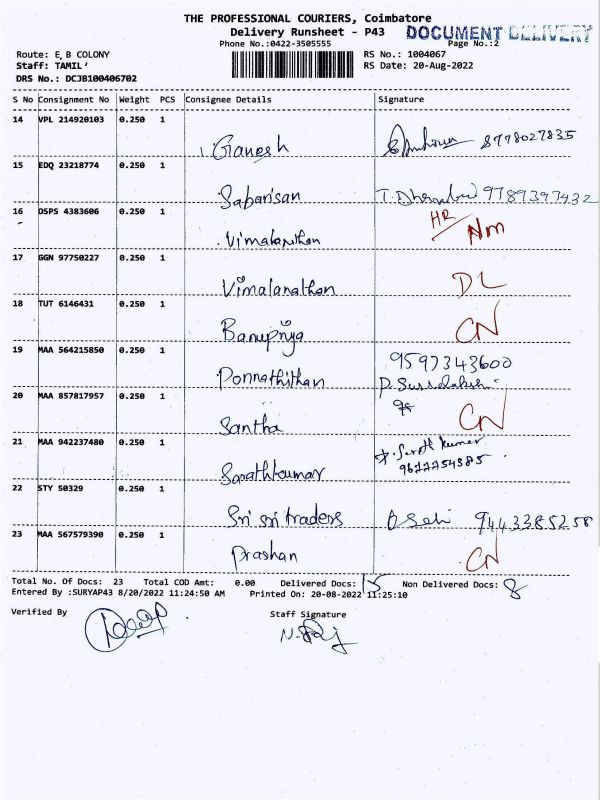 THE PROFESSIONAL COURIERS, Coimbatore
Delivery Runsheet - P43
DOCUMENT DELIVERY
Phone No.:0422-3505555
Page No.:2
Route: E B COLONY
RS No.: 1004067
Staff: TAMIL
RS Date: 20-Aug-2022
DRS No.: DCJB100406702
S No Consignment No Weight PCS Consignee Details Signature
14 VPL 214920103 0.250 1 Ganesh 8778027835
15 EDQ 23218774 0.250 1 Sabarisan 9789397432
16 DSPS 4383606 0.250 1 Vimalanathan HR Nm
17 GGN 97750227 0.250 1 Vimalanathan DL
18 TUT 6146431 0.250 1 Banupriya CN
19 MAA 564215850 0.250 1 Ponnathithan 9597343600
20 MAA 857817957 0.250 1 Santha CN
21 MAA 942237480 0.250 1 Sarathkumar 9622254385
22 STY 50329 0.250 1 Sri sri traders 9443385258
23 MAA 567579390 0.250 1 Prashan CN
Total No. Of Docs: 23 Total COD Amt: 0.00 Delivered Docs: 15 Non Delivered Docs: 8
Entered By :SURYAP43 8/20/2022 11:24:50 AM Printed On: 20-08-2022 11:25:10
Verified By Staff Signature